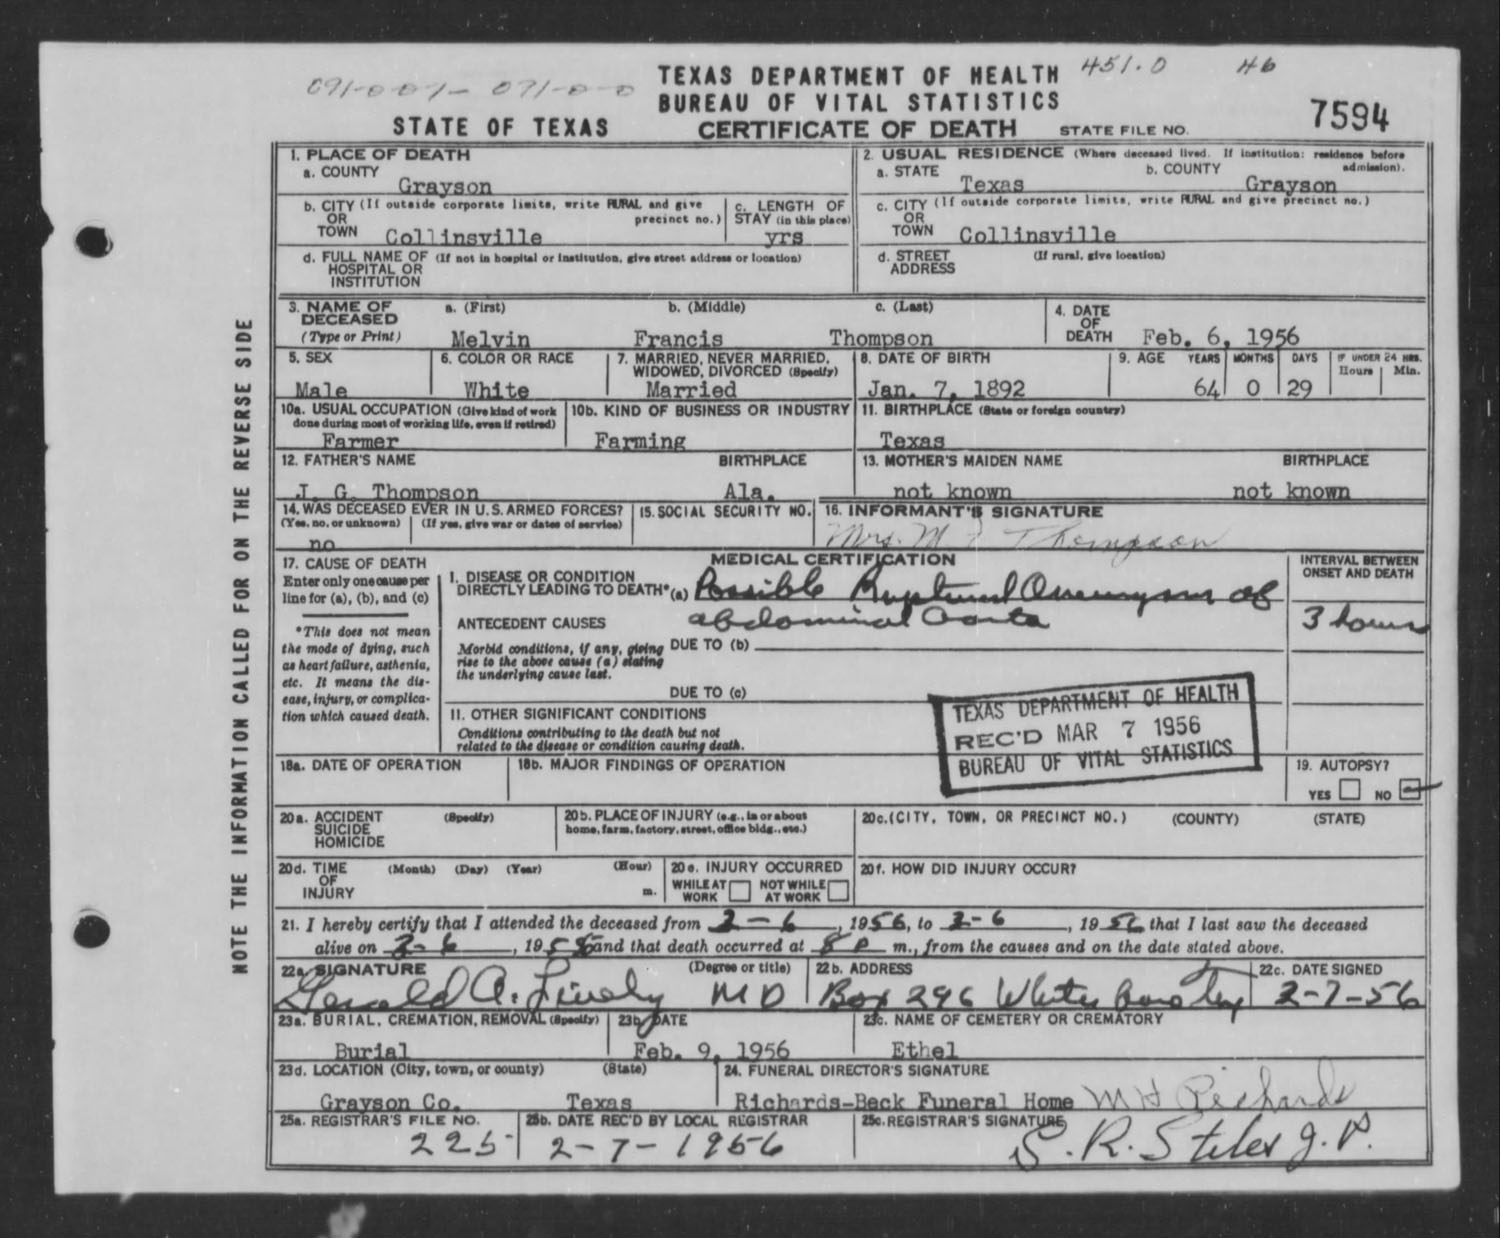 091-0-0 7- 071-0-0
TEXAS DEPARTMENT OF HEALTH 451.0 46
BUREAU OF VITAL STATISTICS
STATE OF TEXAS CERTIFICATE OF DEATH STATE FILE NO. 7594
NOTE THE INFORMATION CALLED FOR ON THE REVERSE SIDE
1. PLACE OF DEATH
a. COUNTY
Grayson
2. USUAL RESIDENCE (Where deceased lived. If institution: residence before admission).
a. STATE b. COUNTY
Texas Grayson
b. CITY (If outside corporate limits, write RURAL and give precinct no.)
OR
TOWN Collinsville
c. LENGTH OF
STAY (in this place)
yrs
c. CITY (If outside corporate limits, write RURAL and give precinct no.)
OR
TOWN Collinsville
d. FULL NAME OF (If not in hospital or institution, give street address or location)
HOSPITAL OR
INSTITUTION
d. STREET (If rural, give location)
ADDRESS
3. NAME OF DECEASED a. (First) b. (Middle) c. (Last)
(Type or Print) Melvin Francis Thompson
4. DATE
OF
DEATH Feb. 6, 1956
5. SEX
Male
6. COLOR OR RACE
White
7. MARRIED, NEVER MARRIED,
WIDOWED, DIVORCED (Specify)
Married
8. DATE OF BIRTH
Jan. 7, 1892
9. AGE YEARS MONTHS DAYS IF UNDER 24 HRS.
Hours Min.
64 0 29
10a. USUAL OCCUPATION (Give kind of work
done during most of working life, even if retired)
Farmer
10b. KIND OF BUSINESS OR INDUSTRY
Farming
11. BIRTHPLACE (State or foreign country)
Texas
12. FATHER'S NAME BIRTHPLACE
J. G. Thompson Ala.
13. MOTHER'S MAIDEN NAME BIRTHPLACE
not known not known
14. WAS DECEASED EVER IN U.S. ARMED FORCES?
(Yes, no, or unknown) (If yes, give war or dates of service)
no
15. SOCIAL SECURITY NO.
16. INFORMANT'S SIGNATURE
Mrs. M F Thompson
17. CAUSE OF DEATH
Enter only one cause per
line for (a), (b), and (c)
*This does not mean
the mode of dying, such
as heart failure, asthenia,
etc. It means the dis-
ease, injury, or complica-
tion which caused death.
MEDICAL CERTIFICATION
I. DISEASE OR CONDITION
DIRECTLY LEADING TO DEATH* (a) Possible Ruptured Aneurysm of
ANTECEDENT CAUSES abdominal aorta
Morbid conditions, if any, giving DUE TO (b)
rise to the above cause (a) stating
the underlying cause last.
DUE TO (c)
II. OTHER SIGNIFICANT CONDITIONS
Conditions contributing to the death but not
related to the disease or condition causing death.
INTERVAL BETWEEN
ONSET AND DEATH
3 hours
TEXAS DEPARTMENT OF HEALTH
REC'D MAR 7 1956
BUREAU OF VITAL STATISTICS
18a. DATE OF OPERATION 18b. MAJOR FINDINGS OF OPERATION
19. AUTOPSY?
YES NO
20a. ACCIDENT (Specify)
SUICIDE
HOMICIDE
20b. PLACE OF INJURY (e.g., in or about
home, farm, factory, street, office bldg., etc.)
20c. (CITY, TOWN, OR PRECINCT NO.) (COUNTY) (STATE)
20d. TIME (Month) (Day) (Year) (Hour)
OF
INJURY m.
20e. INJURY OCCURRED
WHILE AT WORK NOT WHILE AT WORK
20f. HOW DID INJURY OCCUR?
21. I hereby certify that I attended the deceased from 2-6, 1956, to 2-6, 1956 that I last saw the deceased
alive on 2-6, 1956 and that death occurred at 8 p m., from the causes and on the date stated above.
22a. SIGNATURE (Degree or title)
Gerald A. Lively MD
22b. ADDRESS
Box 296 Whitesboro Tex
22c. DATE SIGNED
2-7-56
23a. BURIAL, CREMATION, REMOVAL (Specify)
Burial
23b. DATE
Feb. 9, 1956
23c. NAME OF CEMETERY OR CREMATORY
Ethel
23d. LOCATION (City, town, or county) (State)
Grayson Co. Texas
24. FUNERAL DIRECTOR'S SIGNATURE
Richards-Beck Funeral Home M H Richards
25a. REGISTRAR'S FILE NO.
225
25b. DATE REC'D BY LOCAL REGISTRAR
2-7-1956
25c. REGISTRAR'S SIGNATURE
S. R. Stiles J. P.